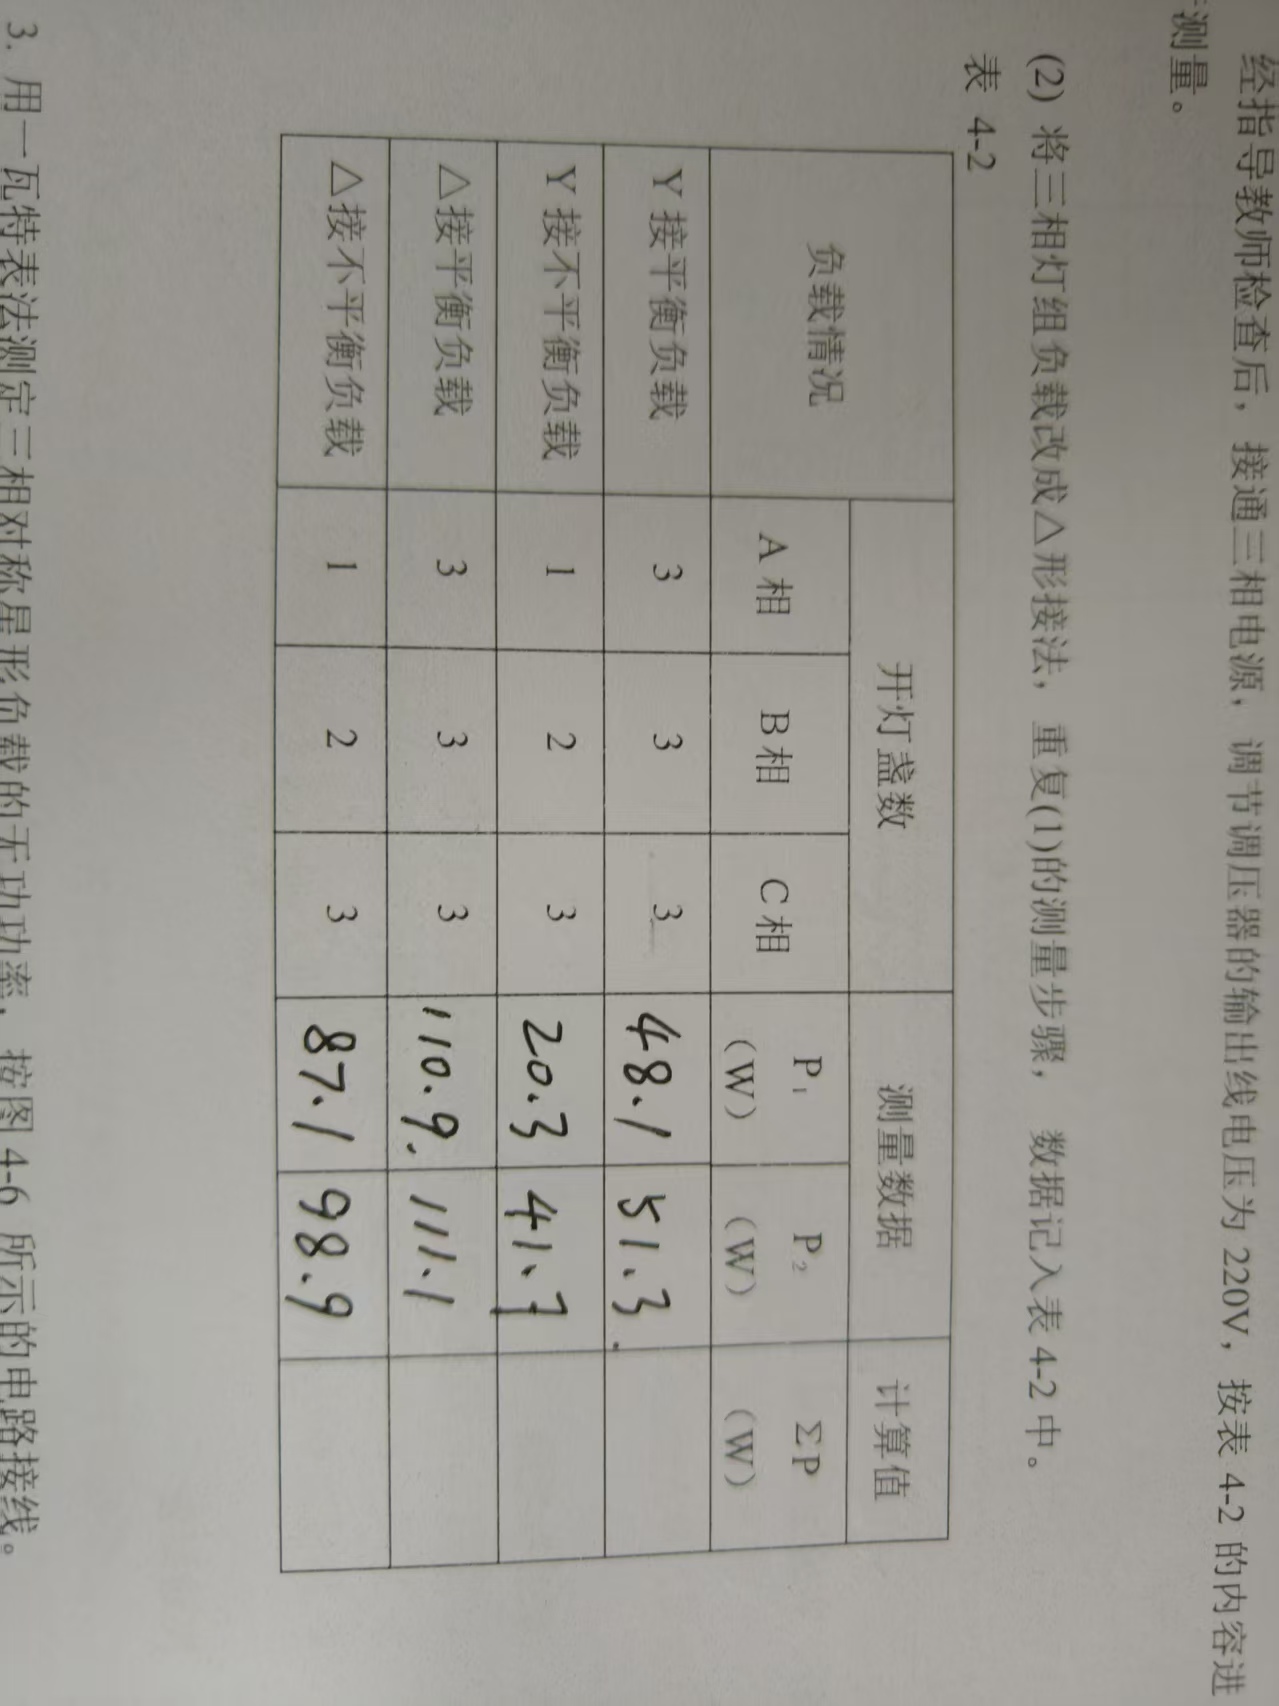 经指导教师检查后，接通三相电源，调节调压器的输出线电压为 220V，按表 4-2 的内容进
测量。
(2) 将三相灯组负载改成△形接法，重复(1)的测量步骤， 数据记入表 4-2 中。
表 4-2
负载情况 开灯盏数 测量数据 计算值
A 相 B 相 C 相 P₁ (W) P₂ (W) ΣP (W)
Y 接平衡负载 3 3 3 48.1 51.3.
Y 接不平衡负载 1 2 3 20.3 41.7
△接平衡负载 3 3 3 110.9. 111.1
△接不平衡负载 1 2 3 87.1 98.9
3. 用一瓦特表法测定三相对称星形负载的无功功率，按图 4-6 所示的电路接线。